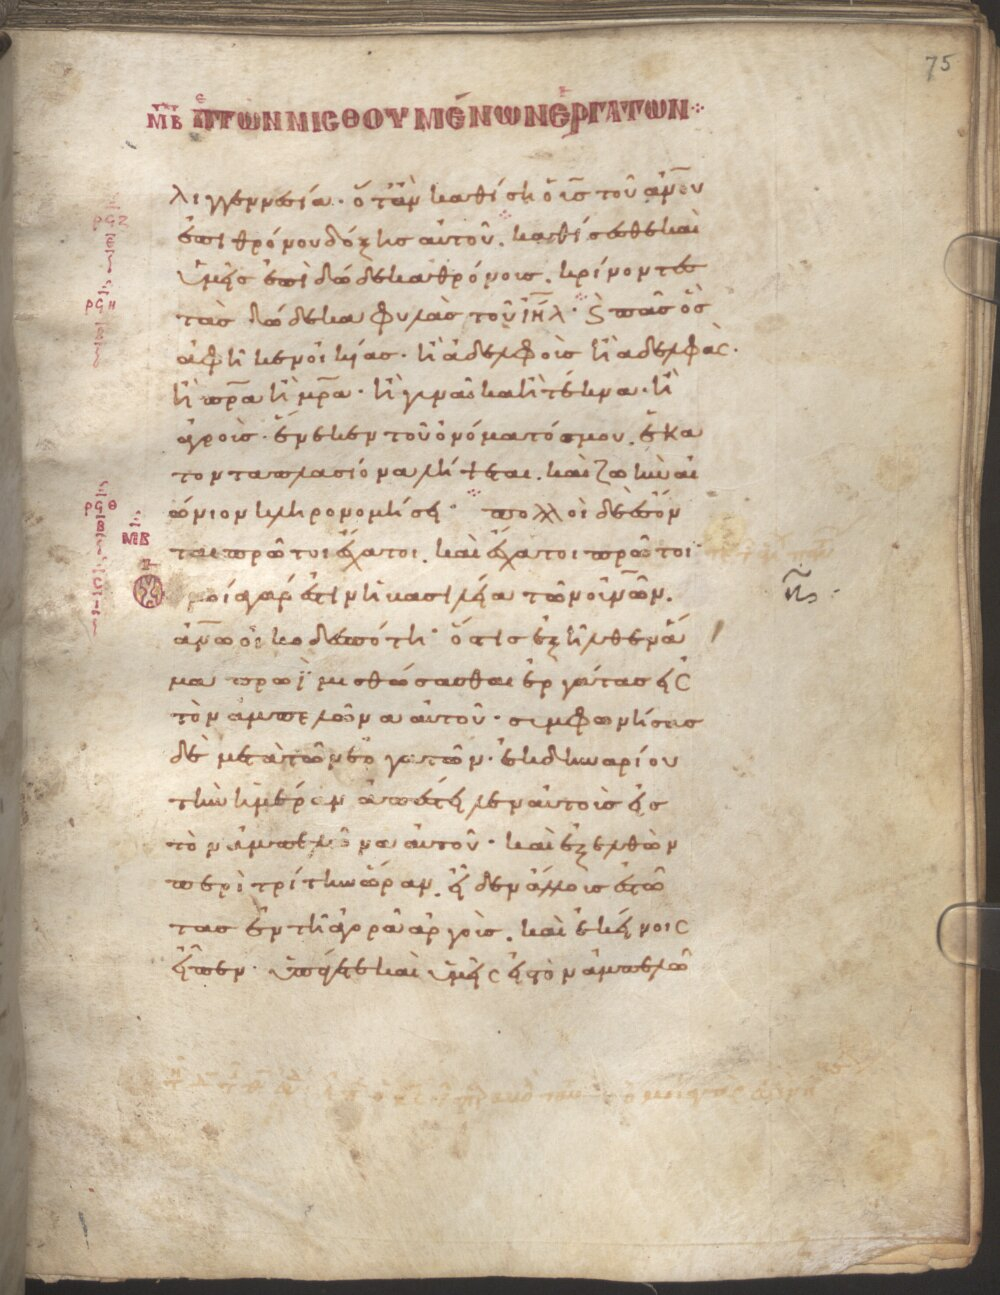 75
ΜΒ ΠΕΡΙ ΤΩΝ ΜΙСΘΟΥΜΕΝΩΝ ΕΡΓΑΤΩΝ
λιγγεννεσία· ὅταν καθίση ὁ υἱς τοῦ ἀνου
ἐπι θρόνου δόξης αὐτοῦ. καθίσεσθε καὶ
ὑμεῖς ἐπὶ δώδεκα θρόνοις. κρίνοντες
τὰς δώδεκα φυλὰς τοῦ ἰηλ· Ϛ πᾶς ὃς
ἀφῆκεν οἰκίας· ἢ ἀδελφοὶς ἢ ἀδελφὰς·
ἢ πρα ἢ μρα· ἢ γυναῖκα ἢ τέκνα· ἢ
ἀγροὶς· ἕνεκεν τοῦ ὀνόματός μου. ἑκα
τονταπλασίονα λήψεται. καὶ ζωὴν αἰ
ώνιον κληρονομήσει· πολλοὶ δὲ ἔσον
ται πρῶτοι ἔσχατοι. καὶ ἔσχατοι πρῶτοι·
μοία γάρ ἐστιν ἡ βασιλεία τῶν οὐνῶν.
ἀνω οἰκοδεσπότη· ὅστις ἐξῆλθεν ἅ
μα πρωῒ μισθώσασθαι ἐργάτας εἰς
τὸν ἀμπελῶνα αὐτοῦ· συμφωνήσας
δὲ μετὰ τῶν ἐργατῶν· ἐκ δηναρίου
τὴν ἡμέραν ἀπέστειλεν αὐτοὶς εἰς
τὸν ἀμπελῶνα αὐτοῦ· καὶ ἐξελθὼν
περὶ τρίτην ὥραν. εἶδεν ἄλλοις ἑστῶ
τας ἐν τῆ ἀγορᾶ ἀργοὶς. καὶ ἐκείνοις
εἶπεν· ὑπάγετε καὶ ὑμεῖς εἰς τὸν ἀμπελῶ
ΜΒ